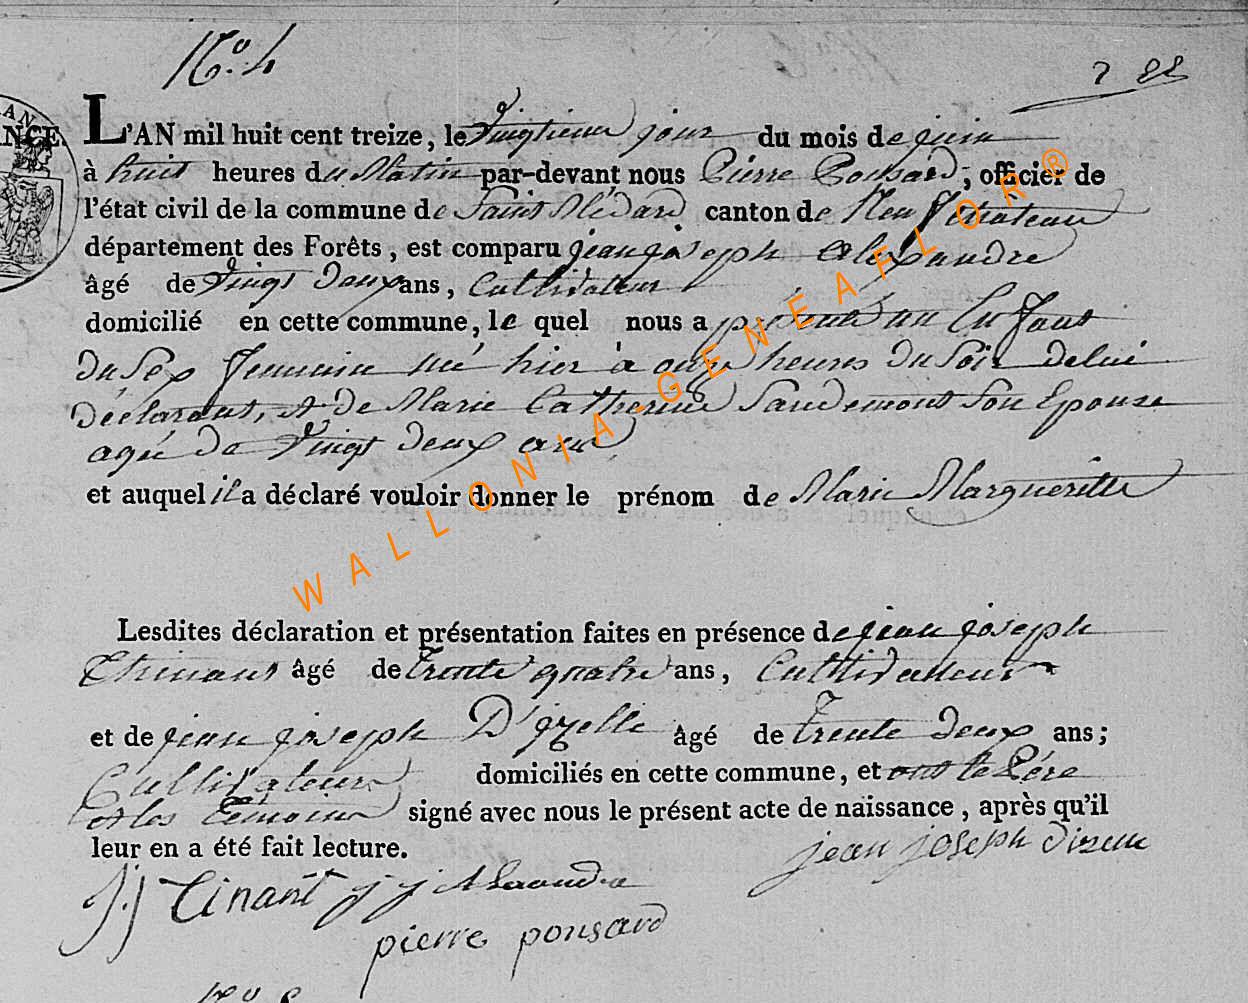 N.o 4
L'AN mil huit cent treize, le Vingtieme jour du mois de juin
à huit heures du Matin par-devant nous Pierre Ponsard, officier de
l'état civil de la commune de Saint Médard canton de Neufchateau
département des Forêts, est comparu jean joseph alexandre
âgé de Vingt Deux ans, Cultivateur
domicilié en cette commune, le quel nous a présenté un Enfant
du Sex feminin né hier à onze heures du Soir de lui
déclarant, et de Marie Catherine Sandemont Son Epouse
agée de Vingt deux ans
et auquel il a déclaré vouloir donner le prénom de Marie Margueritte
Lesdites déclaration et présentation faites en présence de jean joseph
âgé de trente quatre ans, Cultivateur
et de jean joseph D'izelle âgé de trente deux ans;
Cultivateur domiciliés en cette commune, et ont le Pére
et les temoins signé avec nous le présent acte de naissance, après qu'il
leur en a été fait lecture.
jean joseph dizelle
j.j Tinant j j Alexandre
pierre ponsard
WALLONIA-GENEAFLOR®